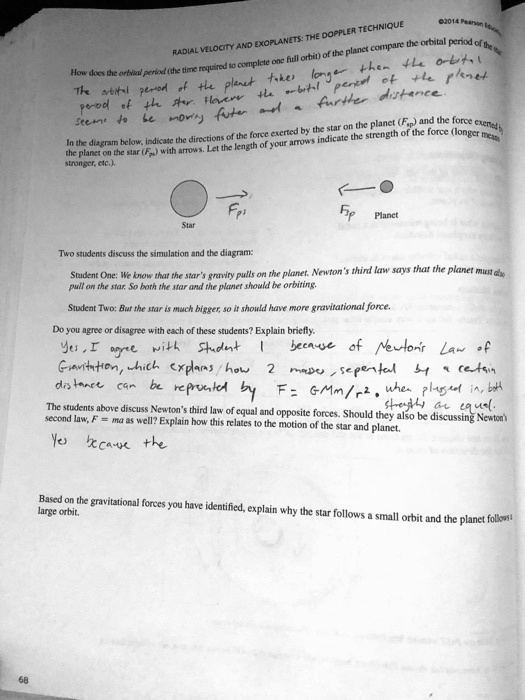 ©2014 Pearson
RADIAL VELOCITY AND EXOPLANETS: THE DOPPLER TECHNIQUE
How does the orbital period (the time required to complete one full orbit) of the planet compare the orbital period of the
The orbital period of the planet takes longer then the orbital
period of the star. However the orbital period of the planet
seems to be moving faster and a further distance.
In the diagram below, indicate the directions of the force exerted by the star on the planet (Fsp) and the force exerted
the planet on the star (Fps) with arrows. Let the length of your arrows indicate the strength of the force (longer means
stronger, etc.).
Fps
Fsp
Planet
Star
Two students discuss the simulation and the diagram:
Student One: We know that the star's gravity pulls on the planet. Newton's third law says that the planet must also
pull on the star. So both the star and the planet should be orbiting.
Student Two: But the star is much bigger, so it should have more gravitational force.
Do you agree or disagree with each of these students? Explain briefly.
Yes, I agree with Student 1 because of Newton's Law of
Gravitation, which explains how 2 masses, seperated by a certain
distance can be reprented by F = GMm/r². when plugged in, both
strengths are equal.
The students above discuss Newton's third law of equal and opposite forces. Should they also be discussing Newton's
second law, F = ma as well? Explain how this relates to the motion of the star and planet.
Yes because the
Based on the gravitational forces you have identified, explain why the star follows a small orbit and the planet follows
large orbit.
68